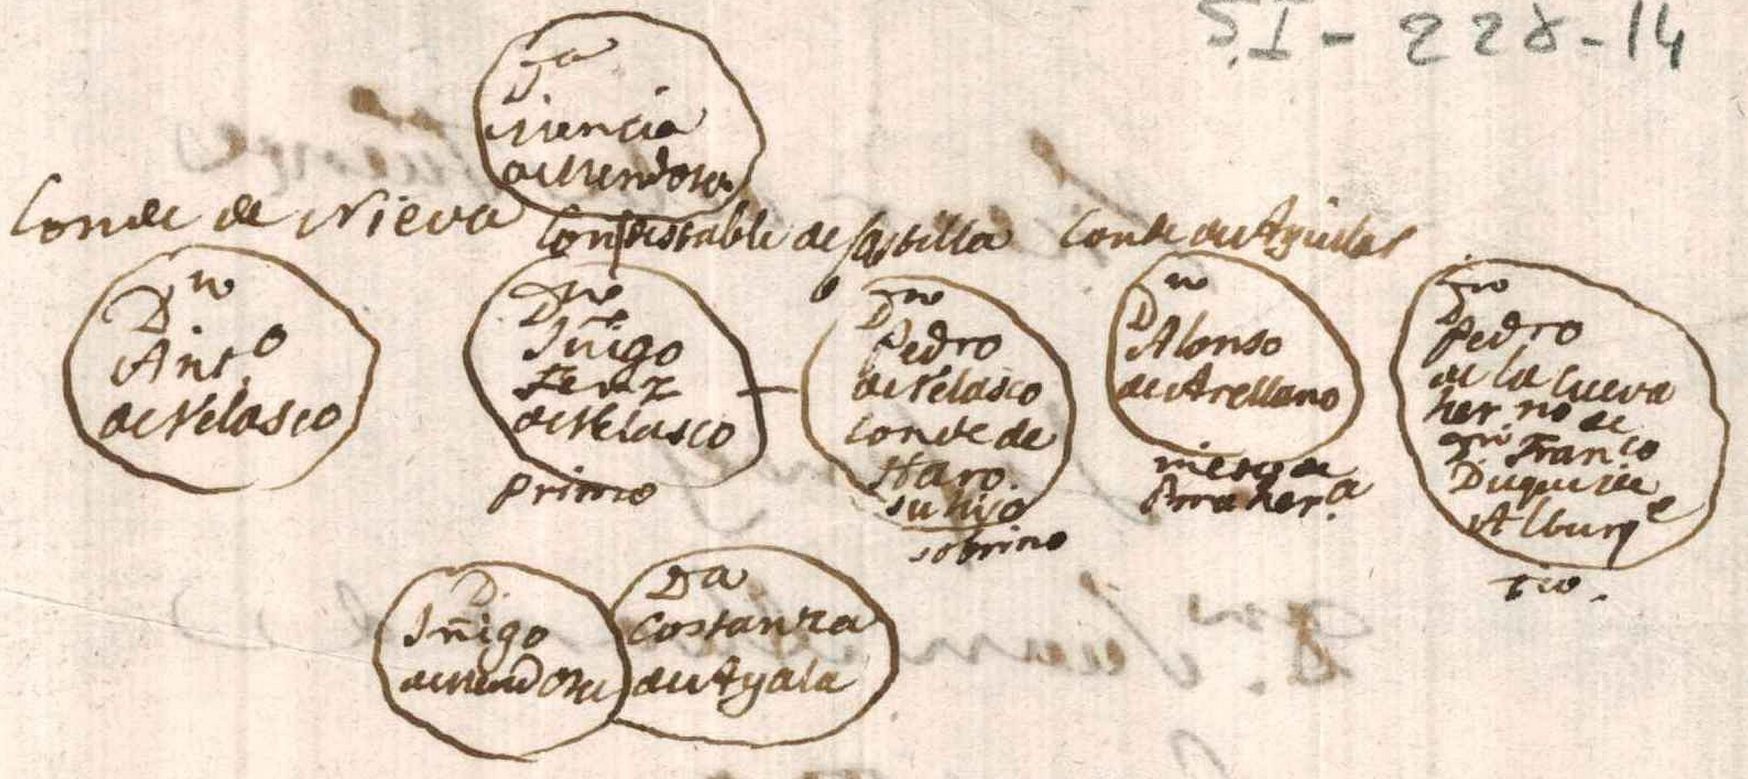 SI - 228-14
Dª
Mencia
de Mendoza
Conde de Nieva
Condestable de Castilla
Conde de Aguilar
Dn
Anto
de Velasco
Dn
Iñigo
Fernz
de Velasco
primo
Dn
Pedro
de Velasco
Conde de
Haro.
su hijo
sobrino
Dn
Alonso
de Arellano
Dn
Pedro
de la Cueva
herno de
Dn Franco
Duque de
Alburqe
tio.
D
Iñigo
de Mendoza
Da
Costanza
de Ayala